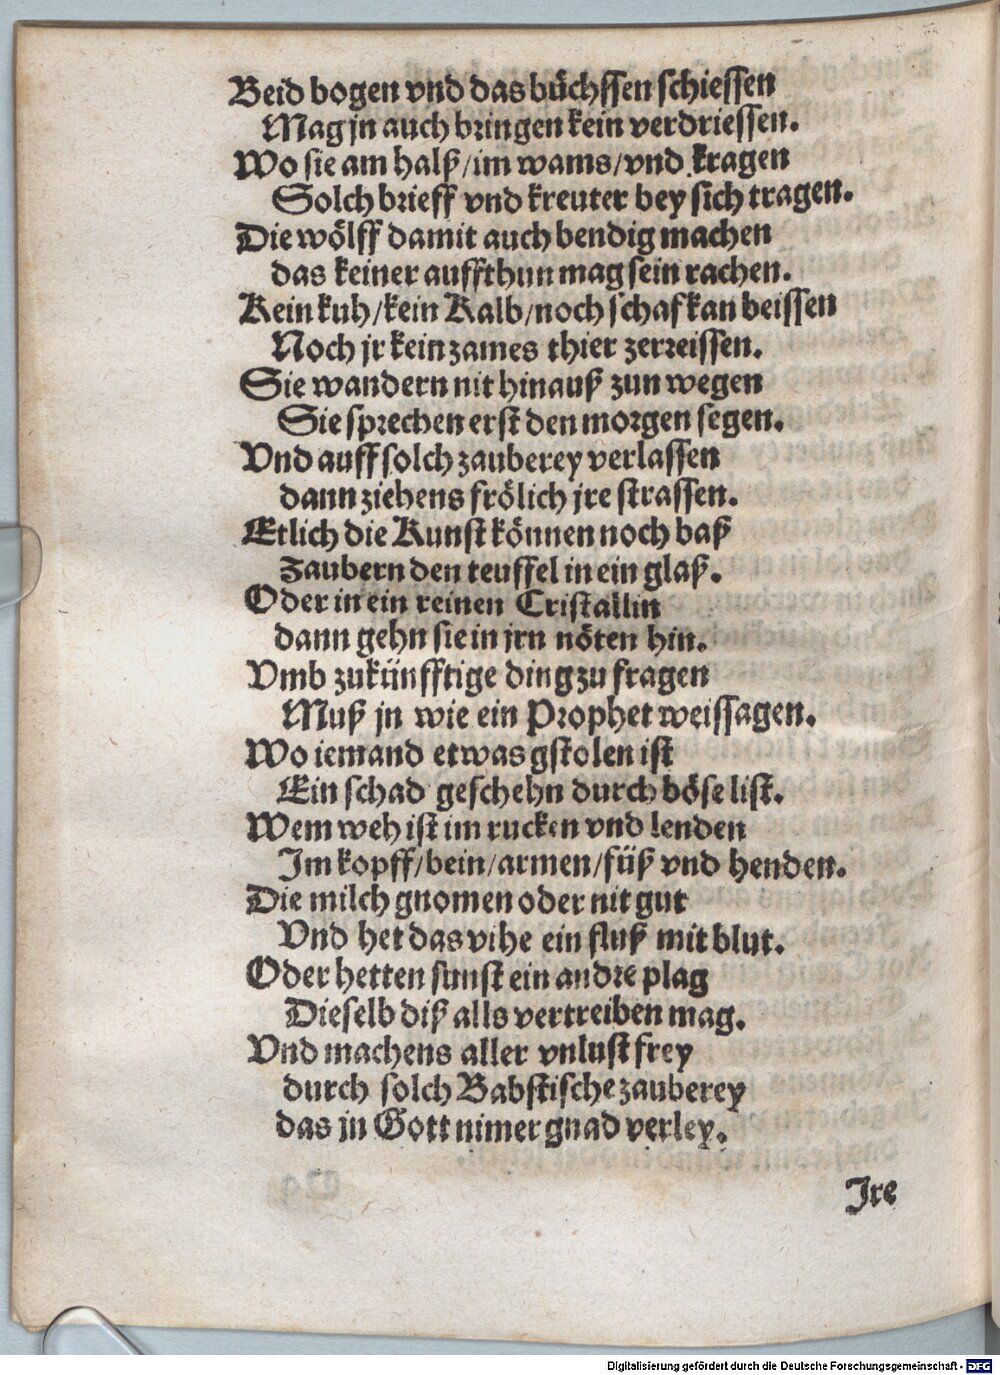 Beid bogen vnd das büchssen schiessen
Mag jn auch bringen kein verdriessen.
Wo sie am halß/im wams/vnd kragen
Solch brieff vnd kreuter bey sich tragen.
Die wölff damit auch bendig machen
das keiner auffthun mag sein rachen.
Kein kuh/kein Kalb/noch schaf kan beissen
Noch jr kein zames thier zerreissen.
Sie wandern nit hinauß zun wegen
Sie sprechen erst den morgen segen.
Vnd auff solch zauberey verlassen
dann ziehens frölich jre strassen.
Etlich die Kunst können noch baß
Zaubern den teuffel in ein glaß.
Oder in ein reinen Cristallin
dann gehn sie in jrn nöten hin.
Vmb zukünfftige ding zu fragen
Muß jn wie ein Prophet weissagen.
Wo iemand etwas gstolen ist
Ein schad geschehn durch böse list.
Wem weh ist im rucken vnd lenden
Im kopff/bein/armen/füß vnd henden.
Die milch gnomen oder nit gut
Vnd het das vihe ein fluß mit blut.
Oder hetten sunst ein andre plag
Dieselb diß alls vertreiben mag.
Vnd machens aller vnlust frey
durch solch Babstische zauberey
das jn Gott nimer gnad verley.
Ire
Digitalisierung gefördert durch die Deutsche Forschungsgemeinschaft - DFG